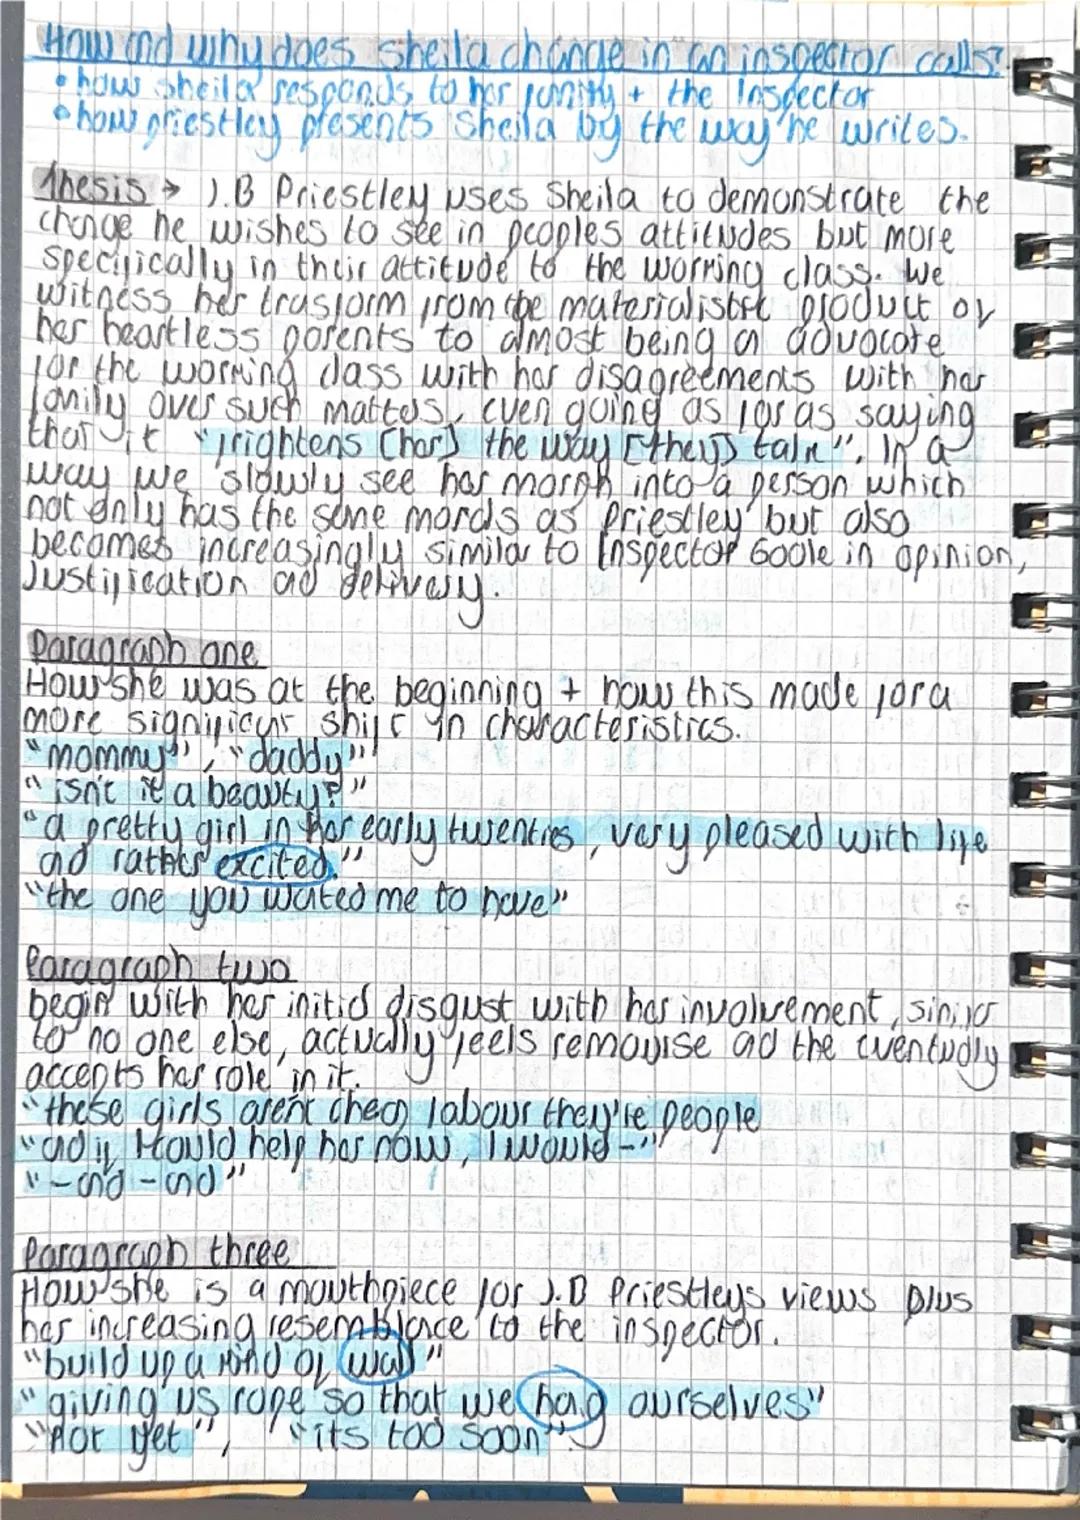 How and why does sheila change in an inspector calls?
• how sheila responds to her family + the Inspector
• how priestley presents sheila by the way he writes.
Thesis → J.B Priestley uses Sheila to demonstrate the
change he wishes to see in peoples attitudes but more
specifically in their attitude to the working class. We
witness her trasform from the materialistic product of
her heartless parents to almost being a advocate
for the working class with her disagreements with her
family over such matters, even going as far as saying
that it "frightens [her] the way [they] talk". In a
way we slowly see her morph into a person which
not only has the same morals as Priestley but also
becomes increasingly similar to Inspector Goole in opinion,
Justification ad delivery.
Paragraph one
How she was at the beginning + how this made for a
more significant shift in characteristics.
"mommy", "daddy"
"isn't it a beauty?"
"a pretty girl in her early twenties, very pleased with life
ad rather excited."
"the one you wated me to have"
Paragraph two
begin with her initial disgust with her involvement, similar
to no one else, actually feels remourse ad the eventually
accepts her role in it.
"these girls arent cheap labour they're people
"ad if I could help her now, I would -"
"- and - and"
Paragraph three
How she is a mouthpiece for J.B Priestleys views plus
her increasing resemblance to the inspector.
"build up a kind of wall"
"giving us rope so that we hang ourselves"
"Not yet", "its too soon"